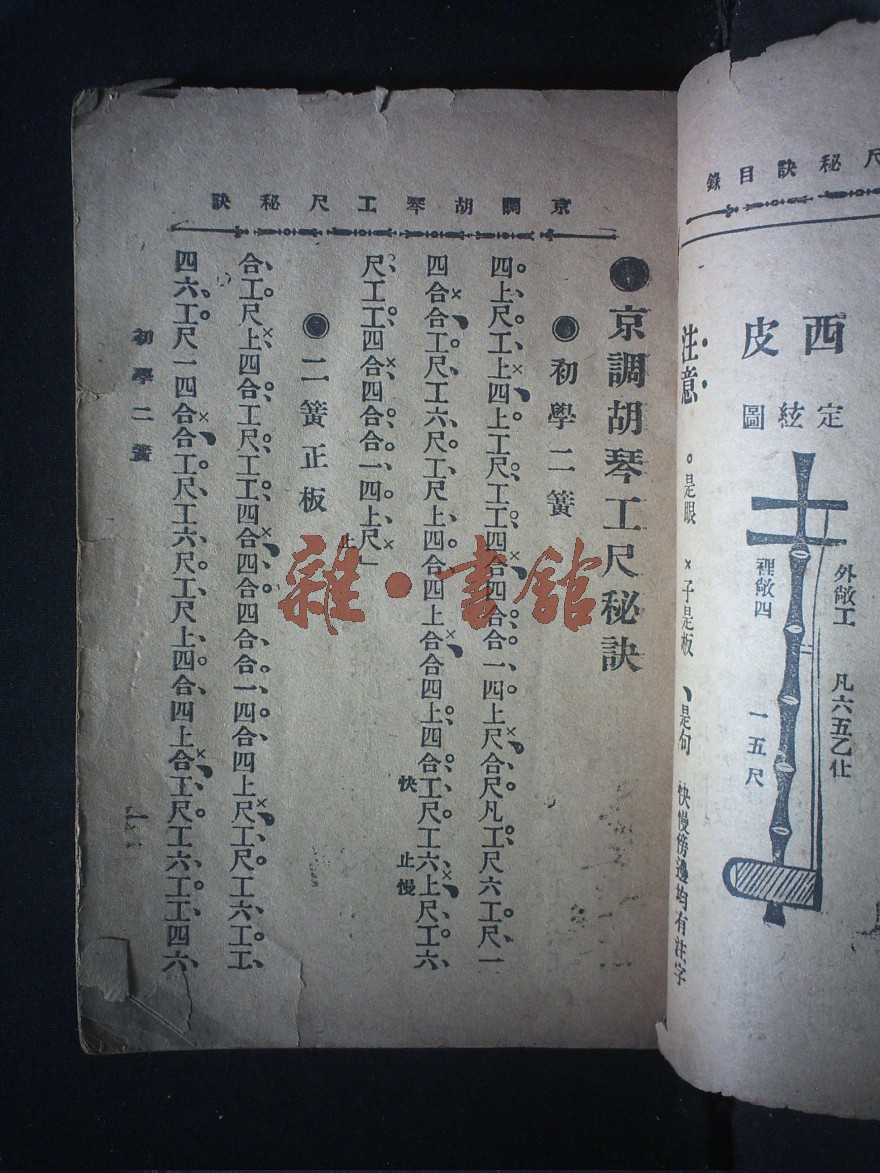 尺秘訣目錄
西皮
定絃圖
外敞工 凡六五乙仩
裡敞四 一五尺
注意 。是眼 ×子是板 、是句 快慢傍邊均有注字
京調胡琴工尺秘訣
●京調胡琴工尺秘訣
●初學二簧
四上尺工上四上工尺工工四合四合合一四上尺合尺凡工尺六工尺一
四合合工尺工六尺工尺上四合四上合合四上四合工尺工六上尺工六
快 止慢
尺工工四合四合合一四上尺
止
●二簧正板
合工尺上四合工尺工工四合四合四合合一四合四上尺工尺工六工工
四六工尺一四合合工尺工六尺工尺上四合四上合工尺工六工工四六
初學二簧
一
雜·書館